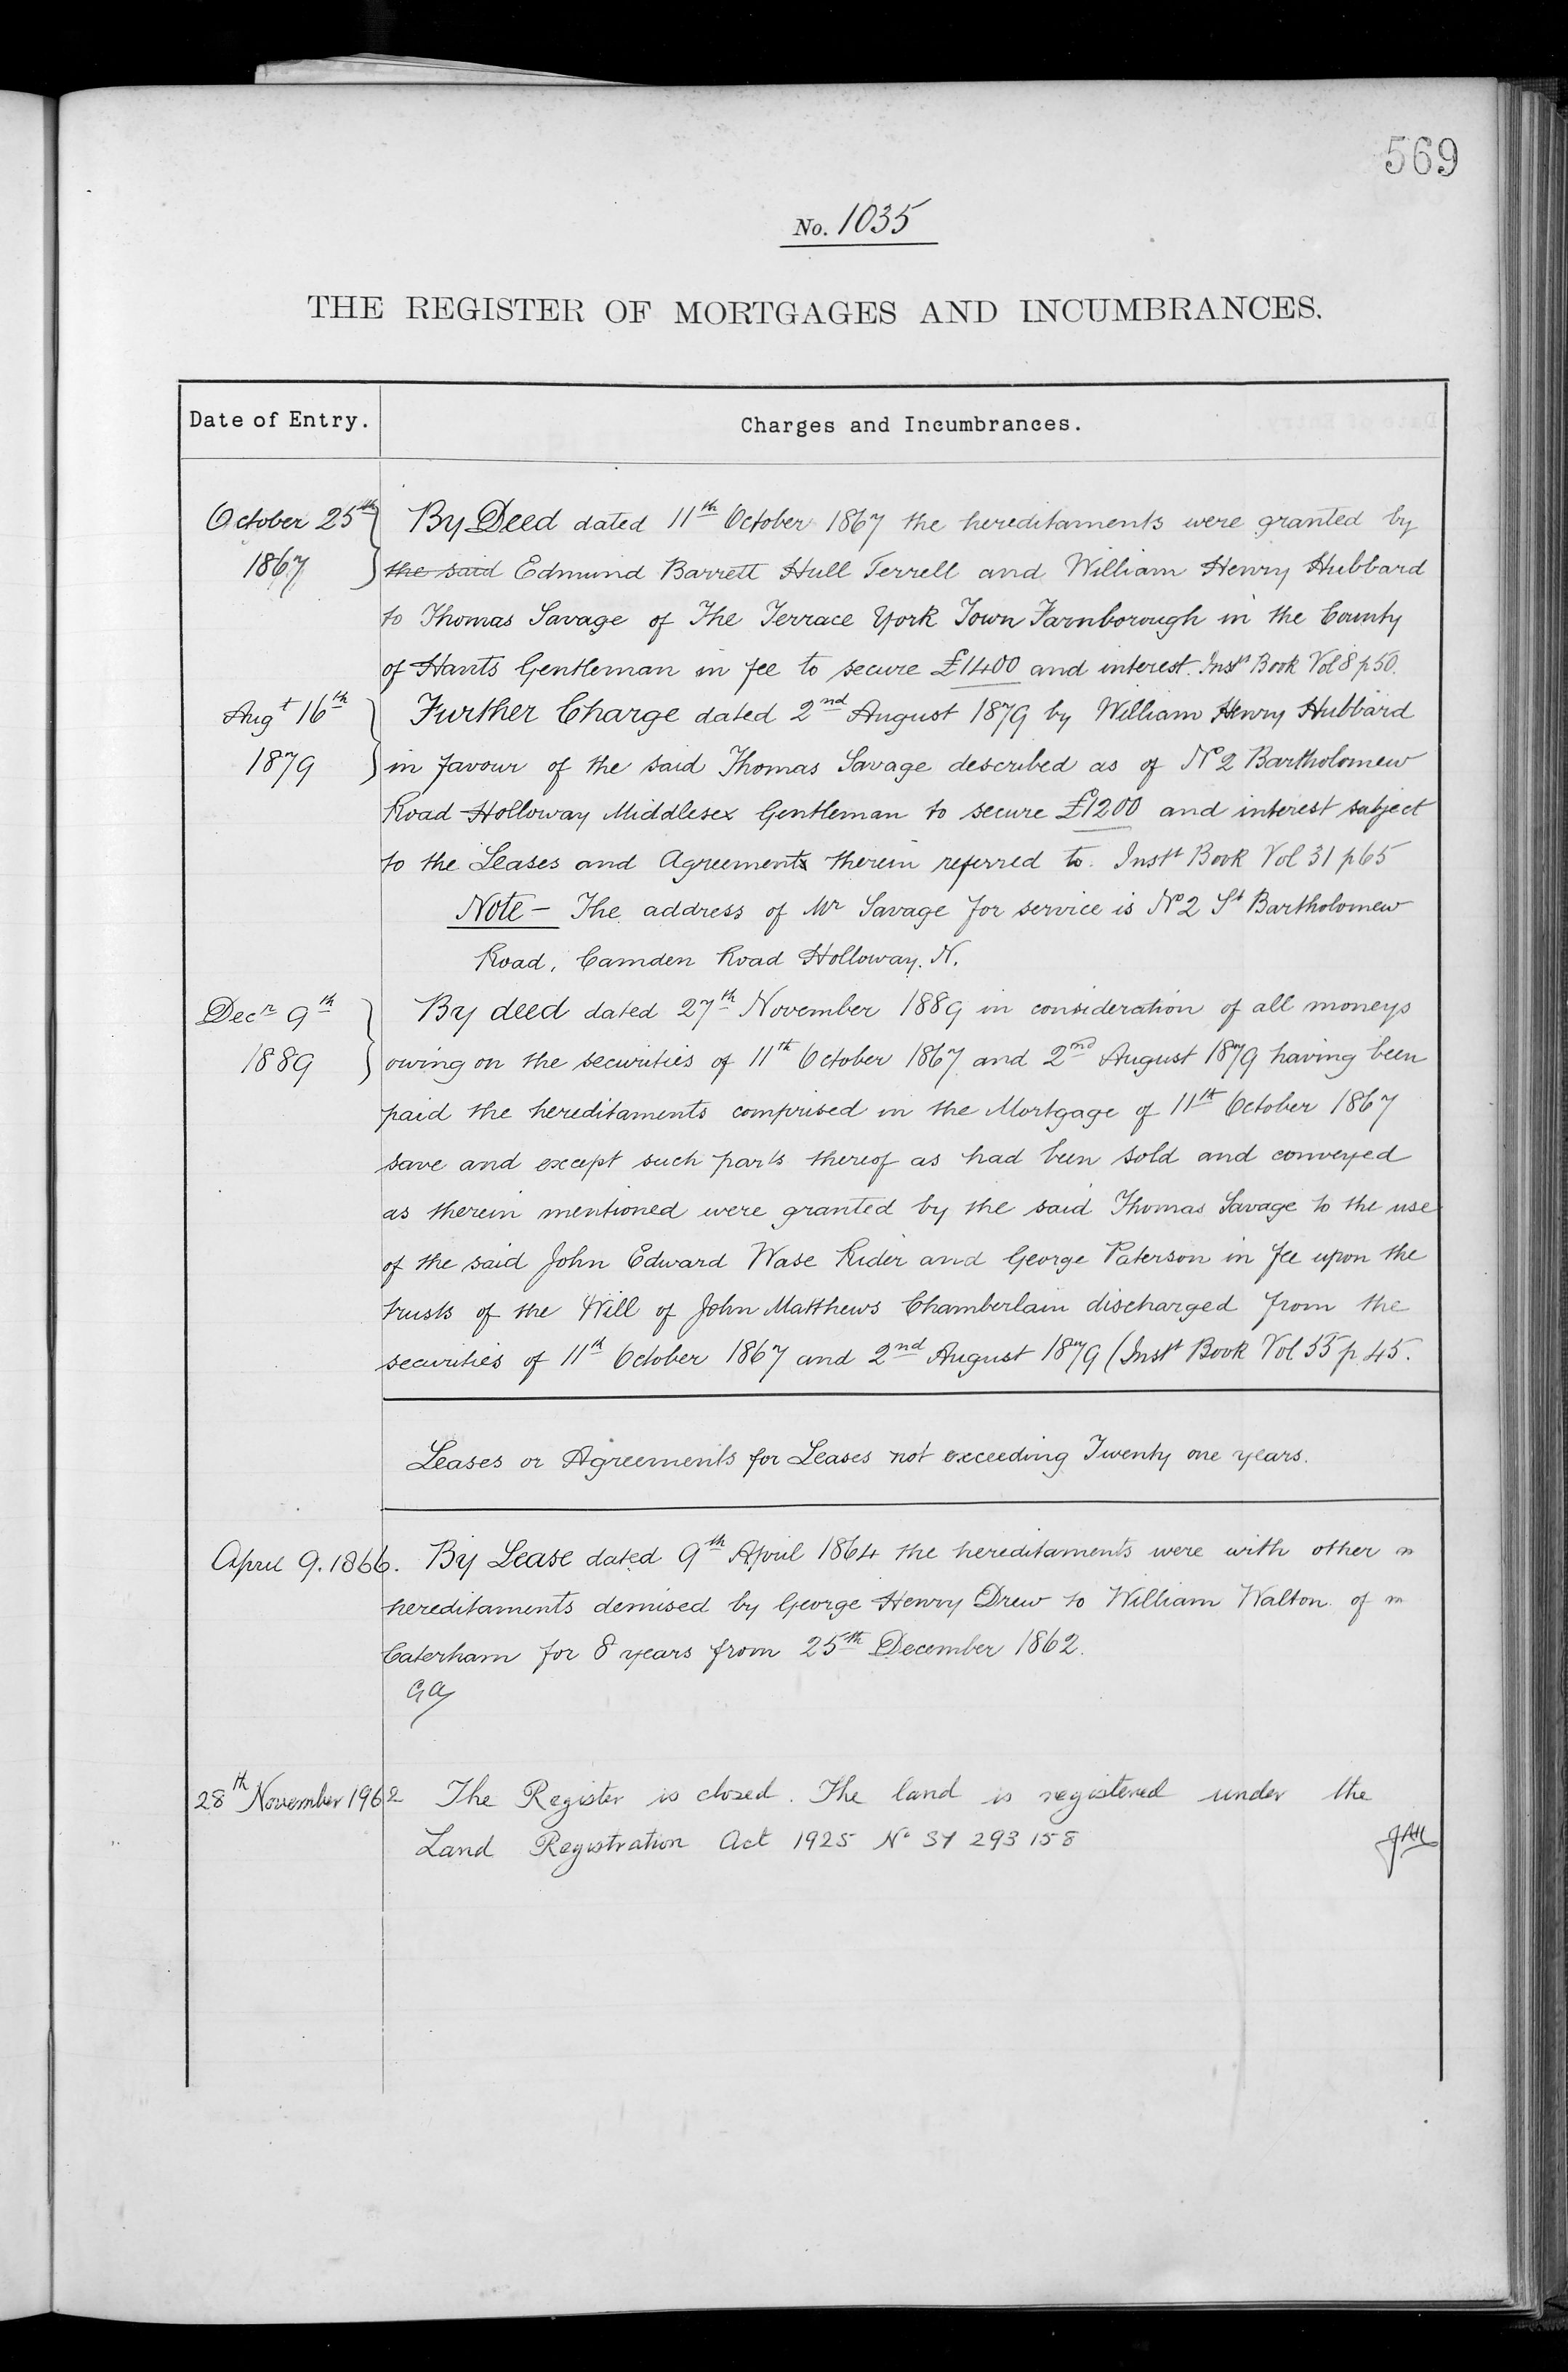 569
No. 1035
THE REGISTER OF MORTGAGES AND INCUMBRANCES.
Date of Entry. Charges and Incumbrances.
October 25th By Deed dated 11th October 1867 the hereditaments were granted by
1867 the said Edmund Barrett Hull Terrell and William Henry Hubbard
to Thomas Savage of The Terrace York Town Farnborough in the County
of Hants Gentleman in fee to secure £1400 and interest. Instt Book Vol 8 p 50.
Augt 16th Further Charge dated 2nd August 1879 by William Henry Hubbard
1879 in favour of the said Thomas Savage described as of No 2 Bartholomew
Road Holloway Middlesex Gentleman to secure £1200 and interest subject
to the Leases and Agreements therein referred to. Instt Book Vol 31 p 65
Note - The address of Mr Savage for service is No 2 St Bartholomew
Road, Camden Road Holloway. N.
Decr 9th By deed dated 27th November 1889 in consideration of all moneys
1889 owing on the securities of 11th October 1867 and 2nd August 1879 having been
paid the hereditaments comprised in the Mortgage of 11th October 1867
save and except such parts thereof as had been sold and conveyed
as therein mentioned were granted by the said Thomas Savage to the use
of the said John Edward Wase Rider and George Paterson in fee upon the
trusts of the Will of John Matthews Chamberlain discharged from the
securities of 11th October 1867 and 2nd August 1879 (Instt Book Vol 55 p 45.
Leases or Agreements for Leases not exceeding Twenty one years.
April 9. 1866. By Lease dated 9th April 1864 the hereditaments were with other
hereditaments demised by George Henry Drew to William Walton of
Caterham for 8 years from 25th December 1862.
28th November 1962 The Register is closed. The land is registered under the
Land Registration Act 1925 No SY 293158